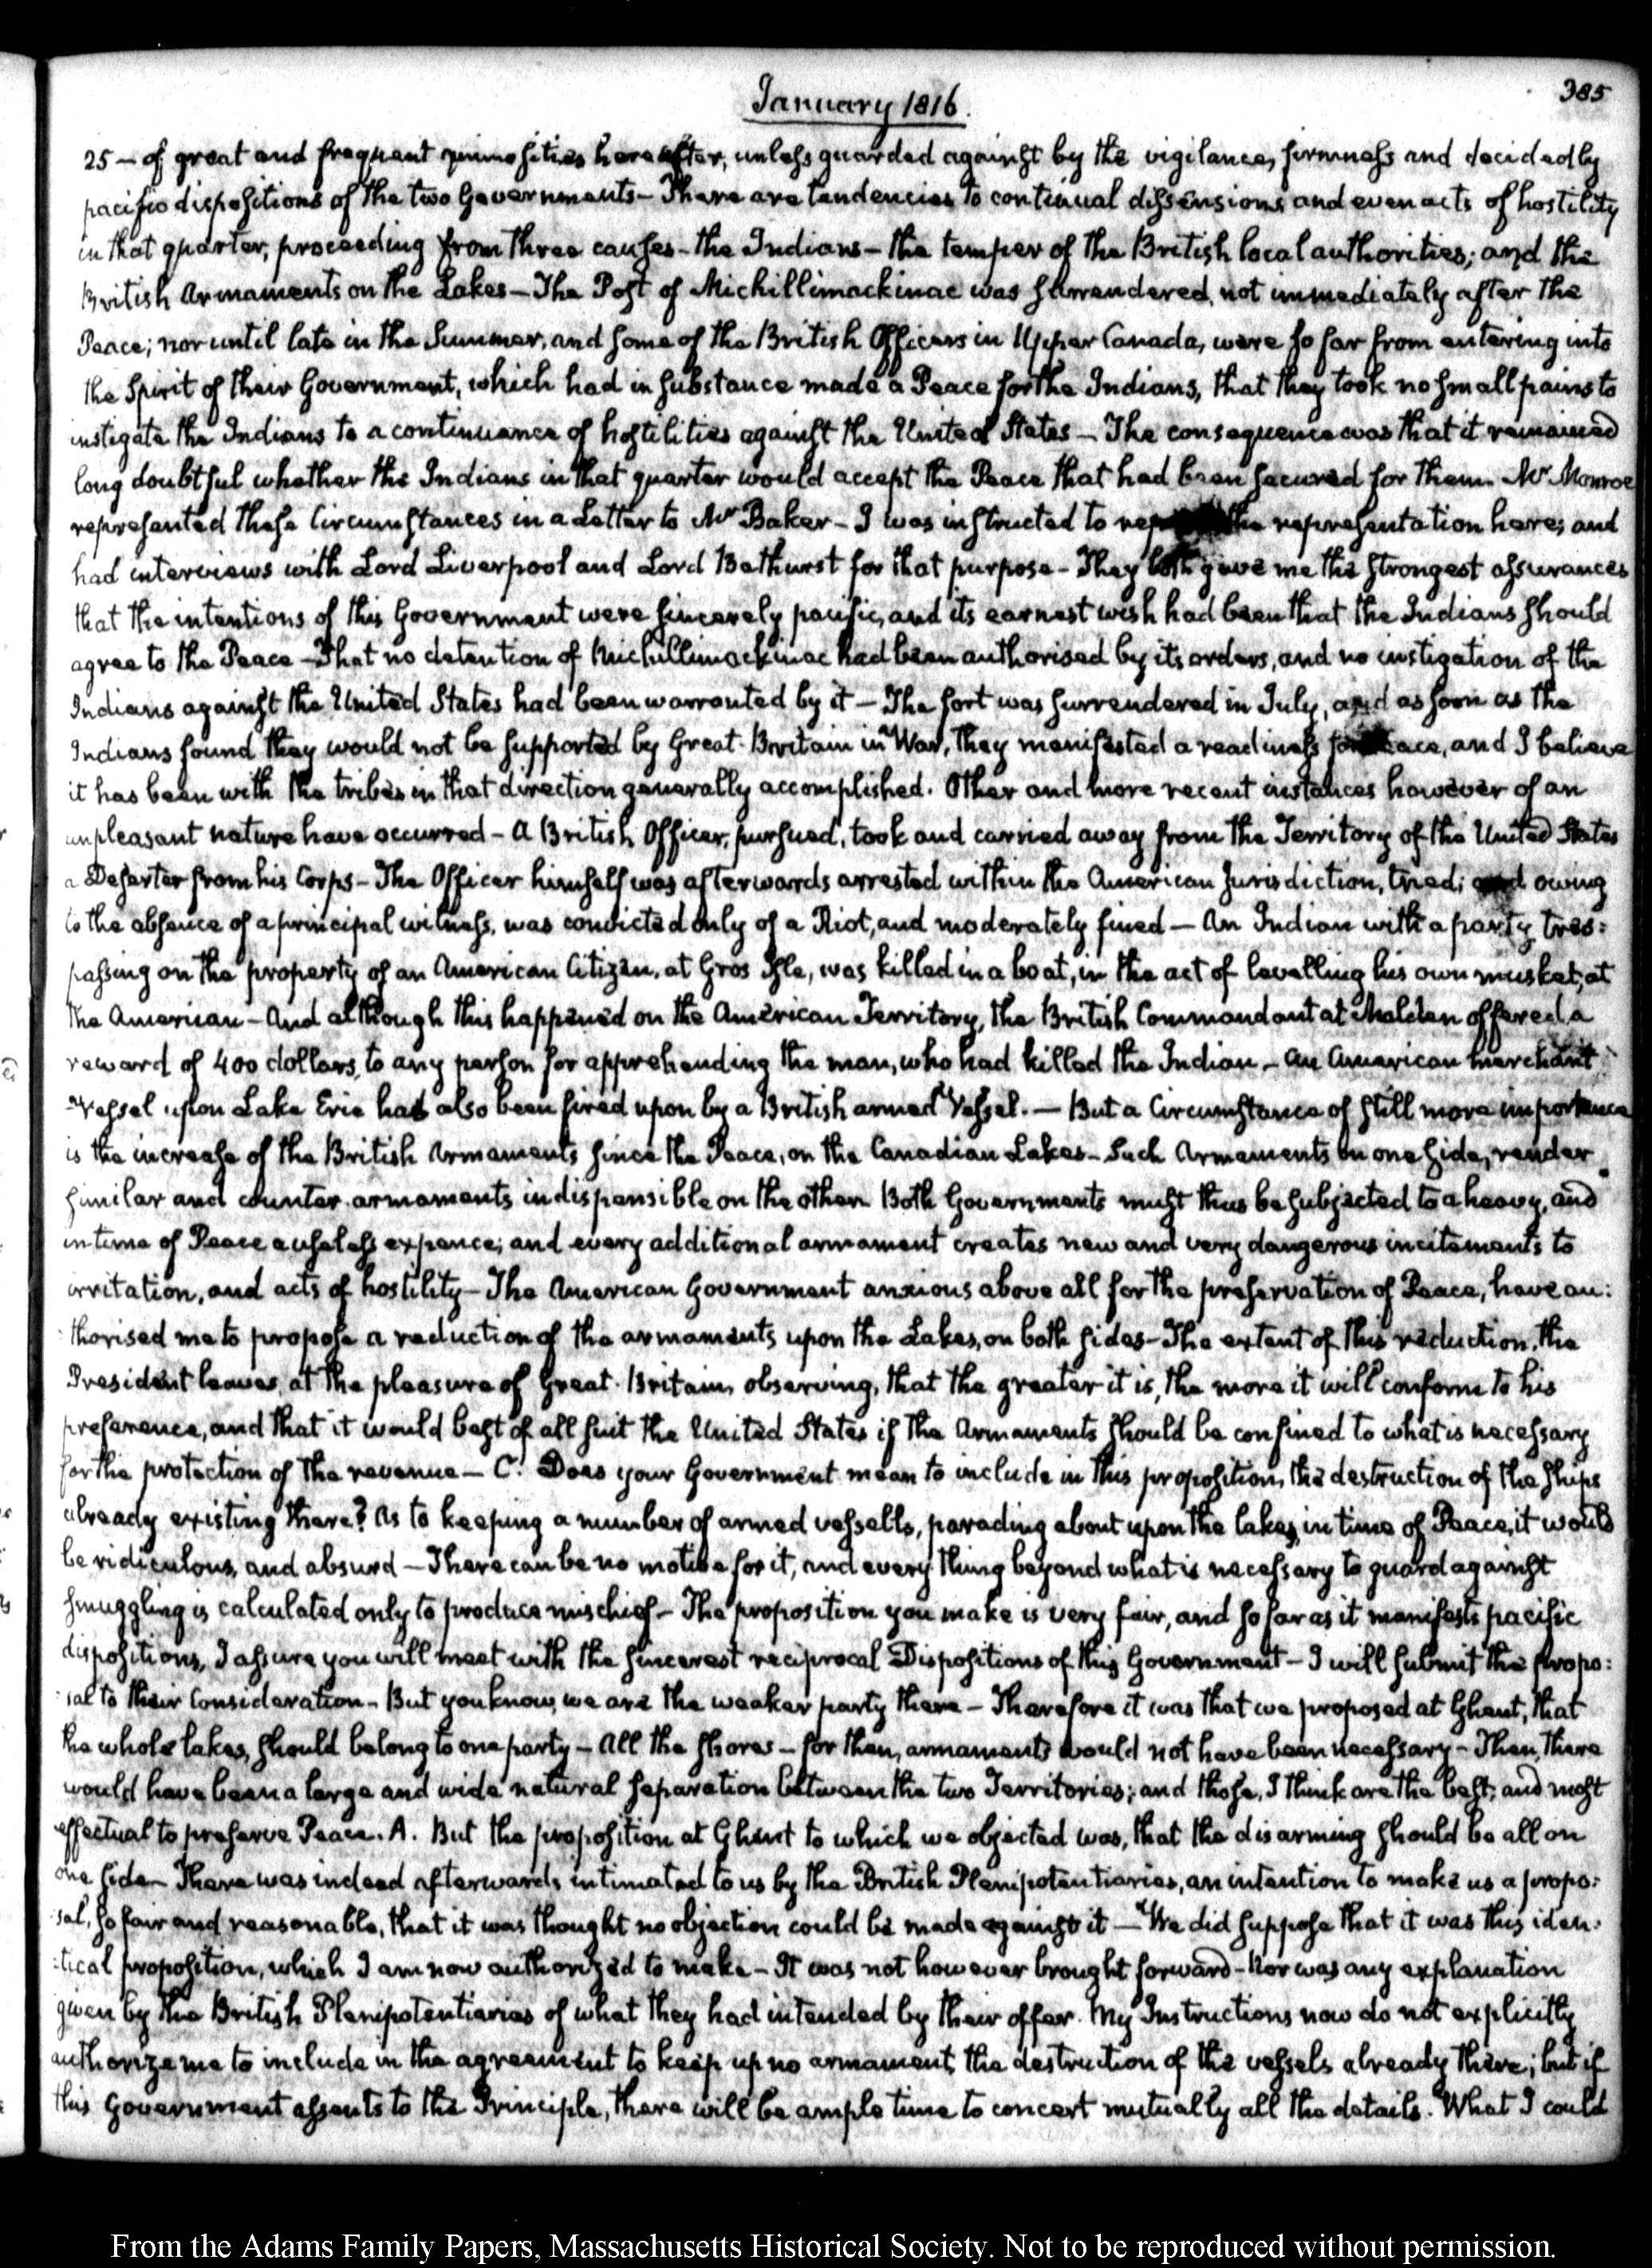 January 1816.
385
25 — of great and frequent animosities hereafter, unless guarded against by the vigilance, firmness and decidedly
pacific dispositions of the two Governments — There are tendencies to continual dissensions and even acts of hostility
in that quarter, proceeding from three causes — the Indians — the temper of the British local authorities; and the
British Armaments on the Lakes — The Post of Michillimackinac was surrendered, not immediately after the
Peace; nor until late in the Summer, and some of the British Officers in Upper Canada, were so far from entering into
the Spirit of their Government, which had in substance made a Peace for the Indians, that they took no small pains to
instigate the Indians to a continuance of hostilities against the United States — The consequence was that it remained
long doubtful whether the Indians in that quarter would accept the Peace that had been secured for them. Mr Monroe
represented these Circumstances in a Letter to Mr Baker — I was instructed to the representation here; and
had interviews with Lord Liverpool and Lord Bathurst for that purpose — They both gave me the strongest assurances
that the intentions of this Government were sincerely pacific, and its earnest wish had been that the Indians should
agree to the Peace — That no detention of Michillimackinac had been authorised by its orders, and no instigation of the
Indians against the United States had been warranted by it — The fort was surrendered in July, and as soon as the
Indians found they would not be supported by Great-Britain in War, they manifested a readiness for Peace, and I believe
it has been with the tribes in that direction generally accomplished. Other and more recent instances however of an
unpleasant nature have occurred — A British Officer, pursued, took and carried away from the Territory of the United States
a Deserter from his Corps — The Officer himself was afterwards arrested within the American Jurisdiction, tried; and owing
to the absence of a principal witness, was convicted only of a Riot, and moderately fined — An Indian with a party tres:
passing on the property of an American Citizen, at Gros Isle, was killed in a boat, in the act of levelling his own musket, at
the American — And although this happened on the American Territory, the British Commandant at Malden offered a
reward of 400 dollars, to any person for apprehending the man, who had killed the Indian. — An American merchant
Vessel upon Lake Erie had also been fired upon by a British armed Vessel. — But a Circumstance of still more importance
is the increase of the British Armaments since the Peace, on the Canadian Lakes — Such Armaments on one side, render
similar and counter-armaments indispensible on the other. Both Governments must thus be subjected to a heavy, and
in time of Peace a useless expence; and every additional armament creates new and very dangerous incitements to
irritation, and acts of hostility — The American Government anxious above all for the preservation of Peace, have au:
:thorised me to propose a reduction of the armaments upon the Lakes, on both sides — The extent of this reduction, the
President leaves, at the pleasure of Great-Britain, observing, that the greater it is, the more it will conform to his
preference, and that it would best of all suit the United States if the Armaments should be confined to what is necessary
for the protection of the revenue — C. Does your Government mean to include in this proposition, the destruction of the ships
already existing there? As to keeping a number of armed vessells, parading about upon the lakes, in time of Peace, it would
be ridiculous, and absurd — There can be no motive for it, and every thing beyond what is necessary to guard against
smuggling is calculated only to produce mischief — The proposition you make is very fair, and so far as it manifests pacific
dispositions, I assure you will meet with the sincerest reciprocal Dispositions of this Government — I will submit the propo:
:sal to their Consideration — But you know, we are the weaker party there — Therefore it was that we proposed at Ghent, that
the whole lakes, should belong to one party — All the shores — for then, armaments would not have been necessary — Then, there
would have been a large and wide natural separation between the two Territories; and those, I think are the best, and most
effectual to preserve Peace. A. But the proposition at Ghent to which we objected was, that the disarming should be all on
one side — There was indeed afterwards, intimated to us by the British Plenipotentiaries, an intention to make us a propo:
:sal, so fair and reasonable, that it was thought no objection could be made against it — We did suppose that it was this iden:
:tical proposition, which I am now authorized to make — It was not however brought forward — Nor was any explanation
given by the British Plenipotentiaries of what they had intended by their offer. My Instructions now do not explicitly
authorize me to include in the agreement to keep up no armament, the destruction of the vessels already there; but if
this Government assents to the Principle, there will be ample time to concert mutually all the details. What I could
From the Adams Family Papers, Massachusetts Historical Society. Not to be reproduced without permission.